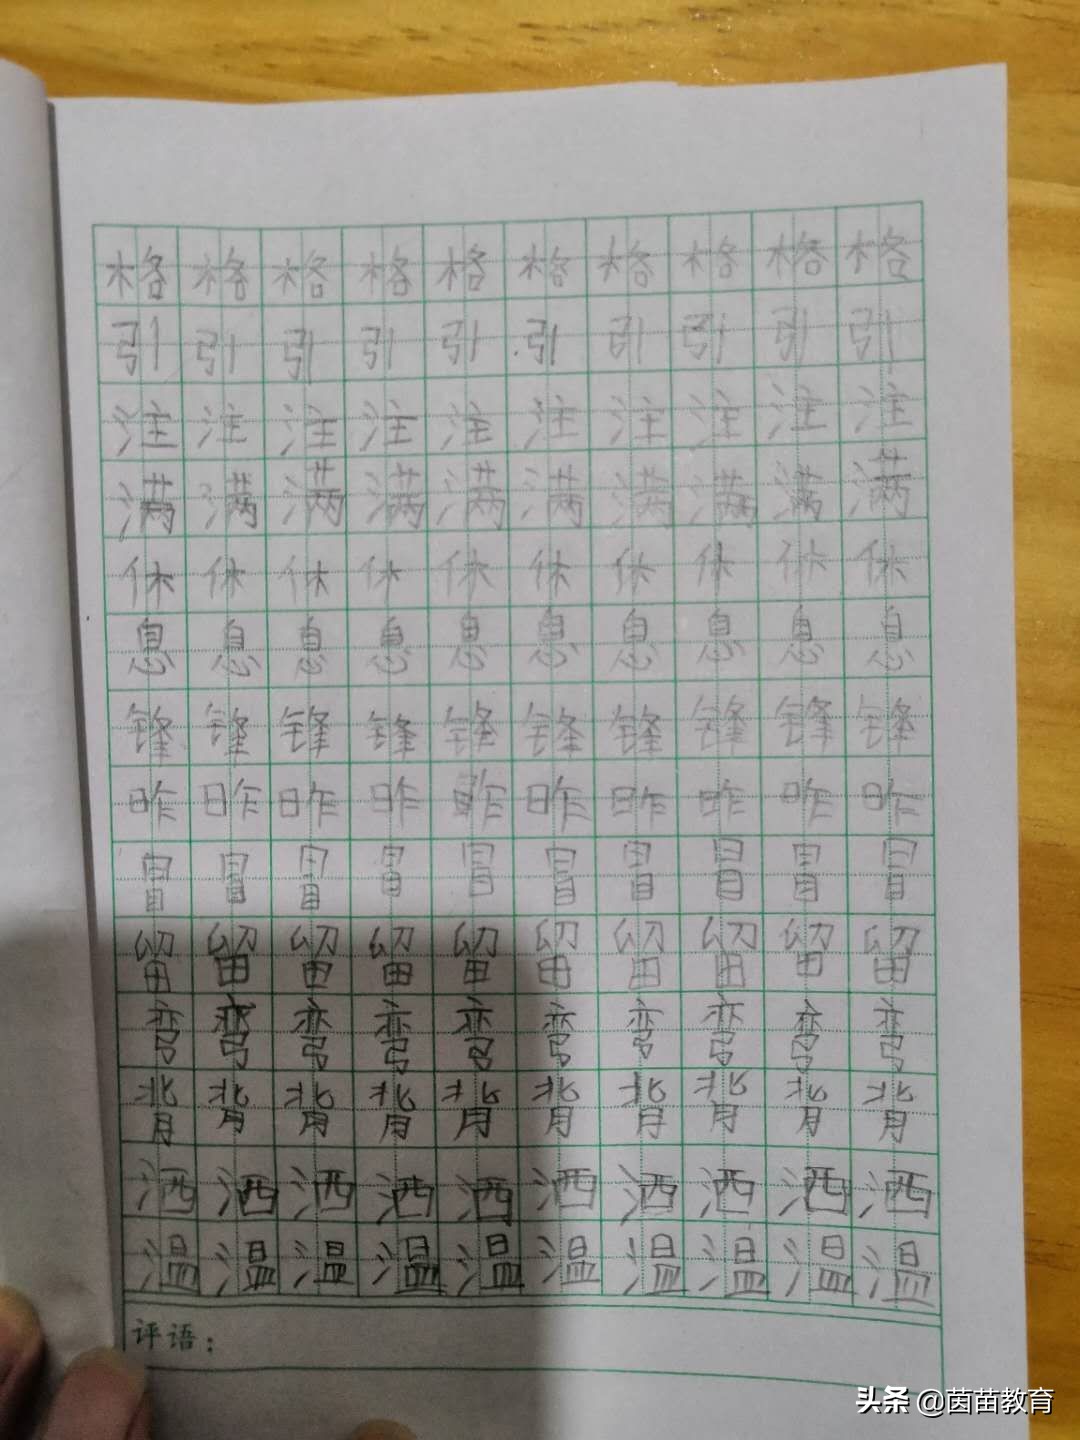 格格格格格格格格格格
引引引引引引引引引引
注注注注注注注注注注
满满满满满满满满满满
休休休休休休休休休休
息息息息息息息息息息
锋锋锋锋锋锋锋锋锋锋
昨昨昨昨昨昨昨昨昨昨
冒冒冒冒冒冒冒冒冒冒
留留留留留留留留留留
弯弯弯弯弯弯弯弯弯弯
背背背背背背背背背背
洒洒洒洒洒洒洒洒洒洒
温温温温温温温温温温
评语：
头条 @茵苗教育